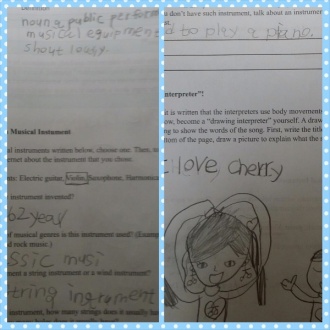 noun a public perform
musical equipment
shout loudly.
Musical Instument
al instruments written below, choose one. Then,
ernet about the instrument that you chose.
te: Electric guitar, Violin, Saxophone, Harmonica
instrument invented?
62 year
f musical genres is this instrument used? (Examp
d rock music.)
ssic musi
ment a string instrument or a wind instrument?
string ingrument
nstrument, how many strings does it usually ha
u don't have such instrument, talk about an instrumer
d to play a piano.
interpreter"!
n is written that the interpreters use body movement
ow, become a "drawing interpreter" yourself. A draw
ng to show the words of the song. First, write the titl
ottom of the page, draw a picture to explain what the s
I love cherry